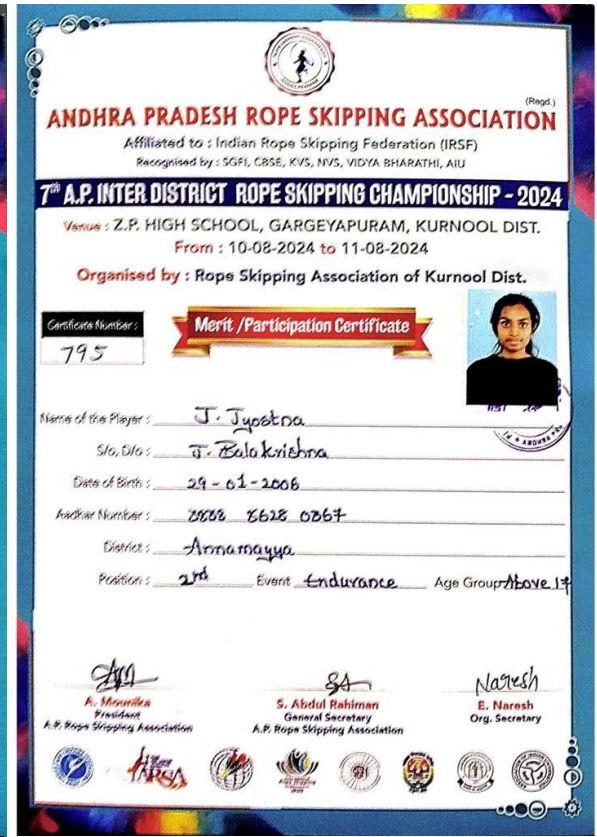 (Regd.)
ANDHRA PRADESH ROPE SKIPPING ASSOCIATION
Affiliated to : Indian Rope Skipping Federation (IRSF)
Recognised by : SGFI, CBSE, KVS, NVS, VIDYA BHARATHI, AIU
7th A.P. INTER DISTRICT ROPE SKIPPING CHAMPIONSHIP - 2024
Venue : Z.P. HIGH SCHOOL, GARGEYAPURAM, KURNOOL DIST.
From : 10-08-2024 to 11-08-2024
Organised by : Rope Skipping Association of Kurnool Dist.
Certificate Number :
795
Merit /Participation Certificate
Name of the Player : J. Jyostna
S/o, D/o : J. Balakrishna
Date of Birth : 29-01-2006
Aadhar Number : 8628
District : Annamayya
Position : 2nd Event Endurance Age Group Above 17
Naresh
A. Mounika
President
A.P. Rope Skipping Association
S. Abdul Rahiman
General Secretary
A.P. Rope Skipping Association
E. Naresh
Org. Secretary